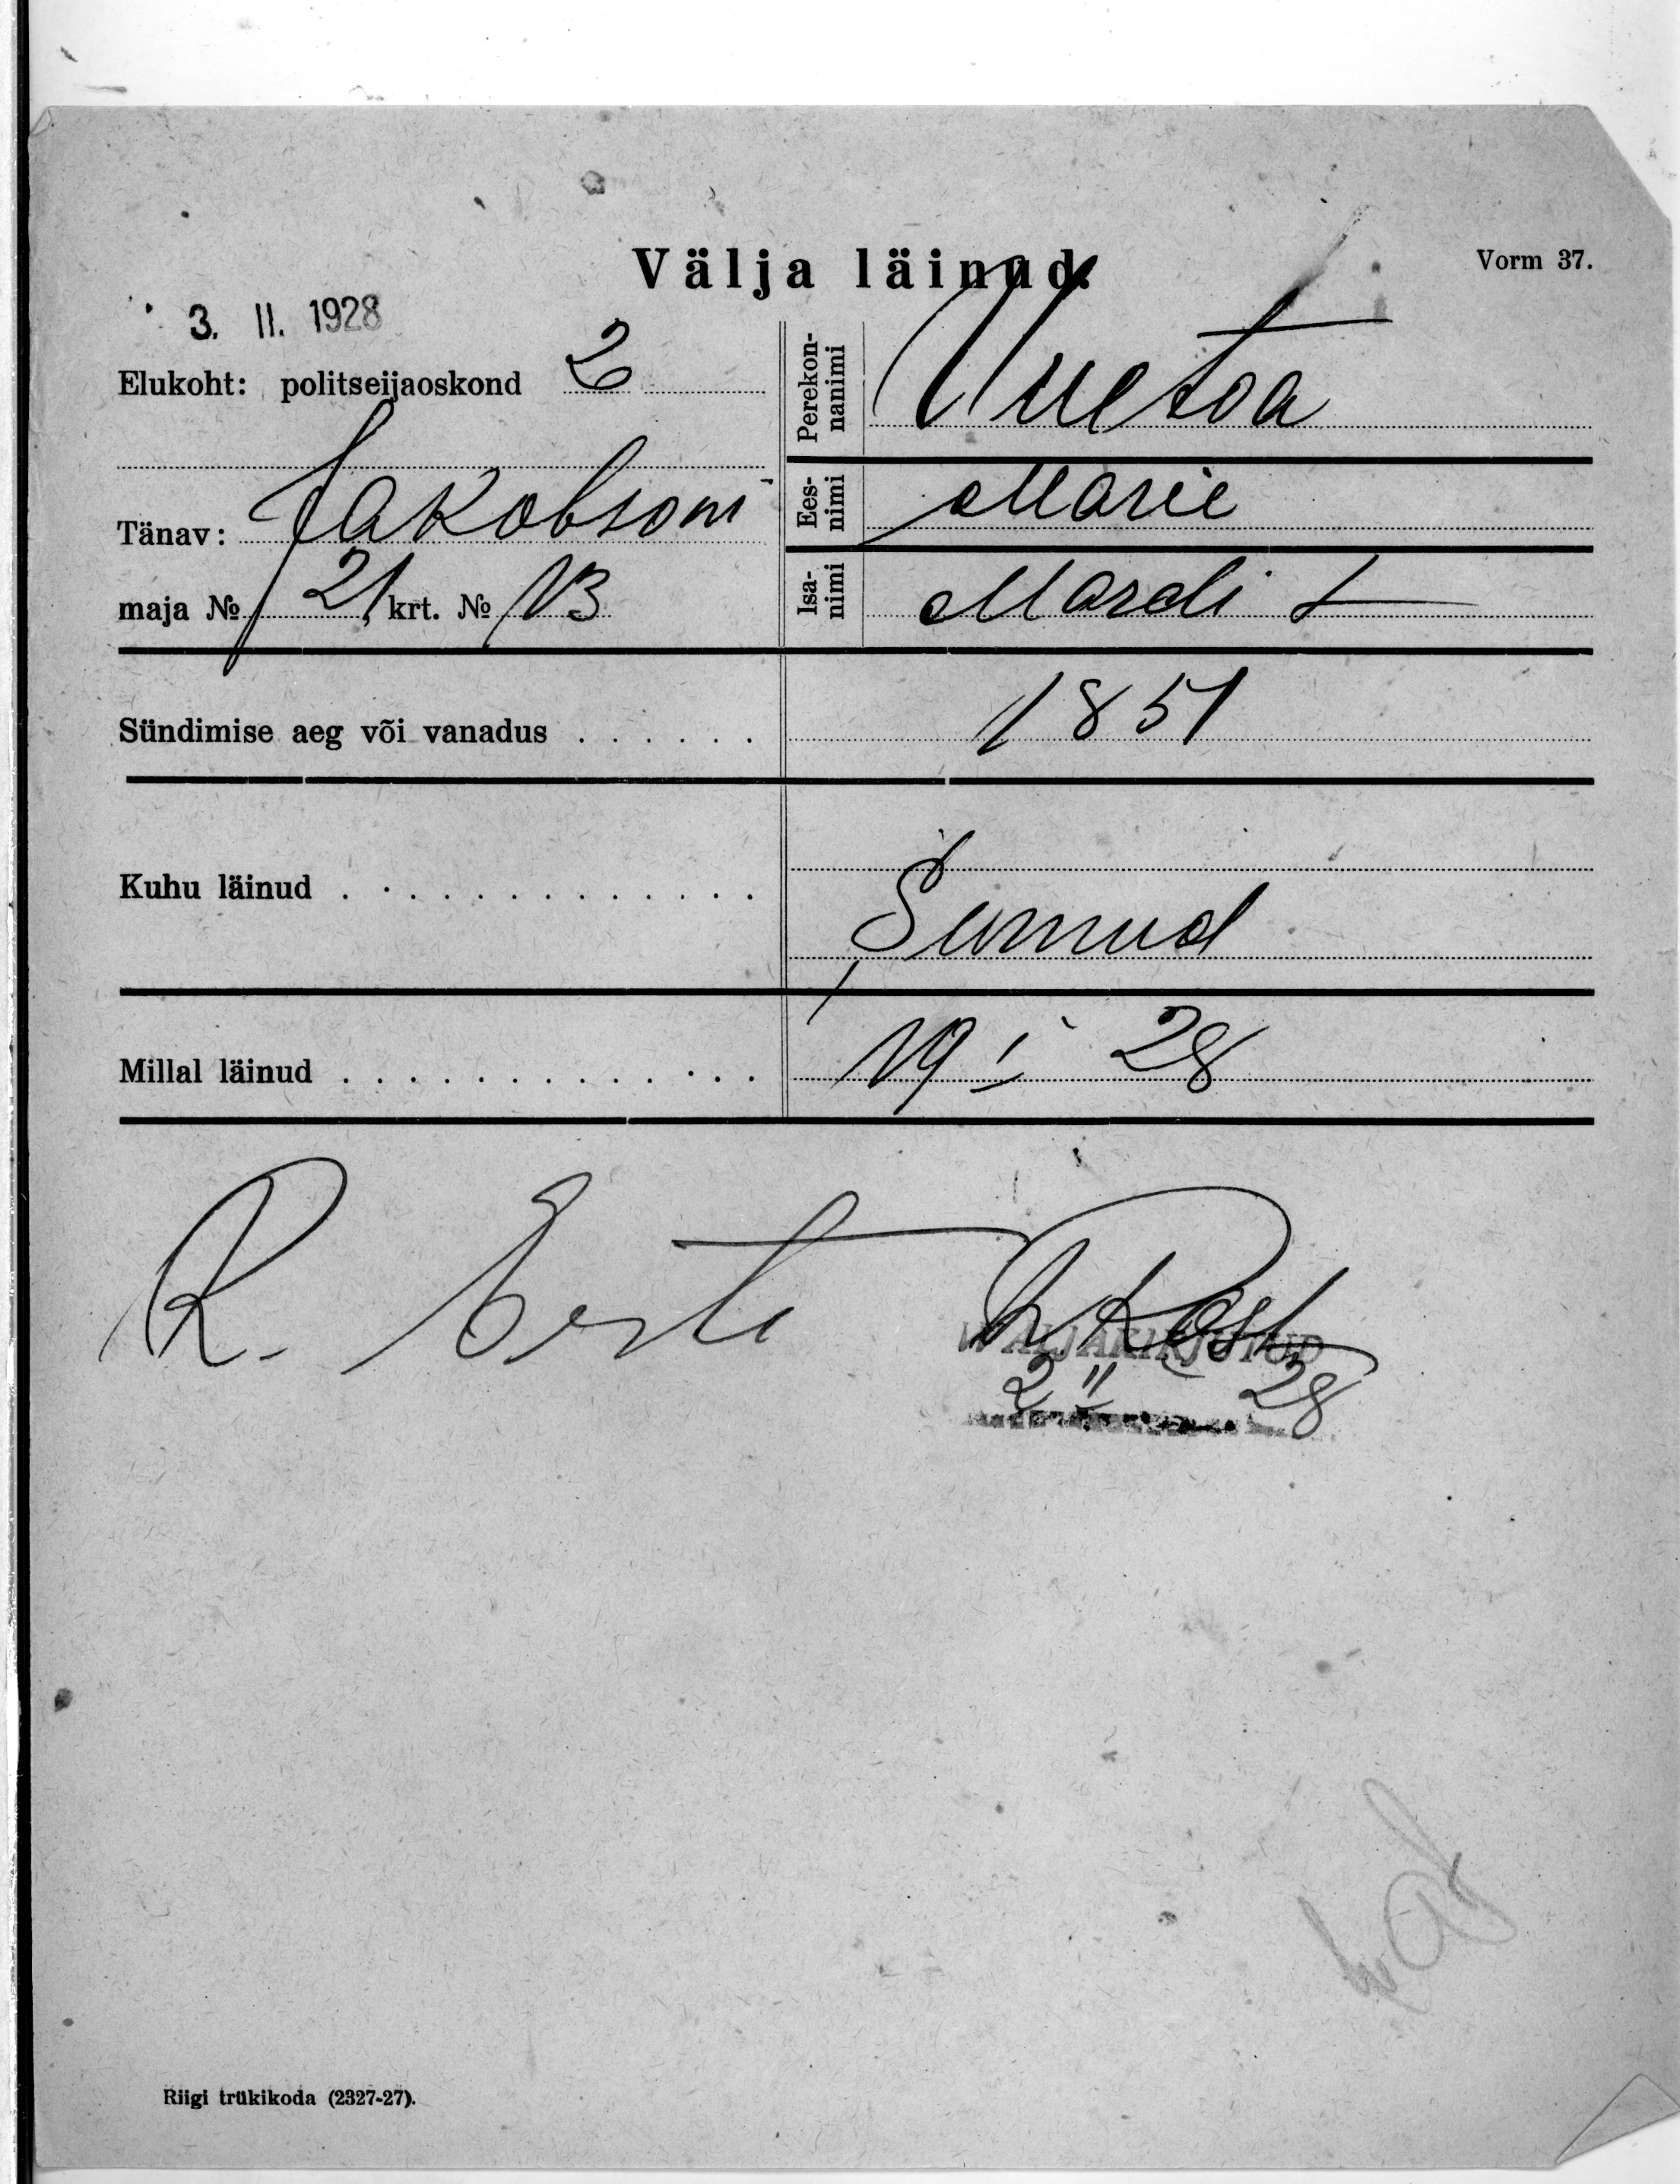 Välja läinud.
Vorm 37.
3. II. 1928
Elukoht: politseijaoskond 2
Perekon-
nanimi
Uuetoa
Tänav: Jakobsoni
Ees-
nimi
Marie
maja № 21 krt. № 13
Isa-
nimi
Mardi t
Sündimise aeg või vanadus . . . . . . 1851
Kuhu läinud . . . . . . . . . . . . . Surnud
Millal läinud . . . . . . . . . . . . . 19 I 28
R. Eesti
WÄLJAKIRJUTUD
2 II 28
Riigi trükikoda (2327-27).